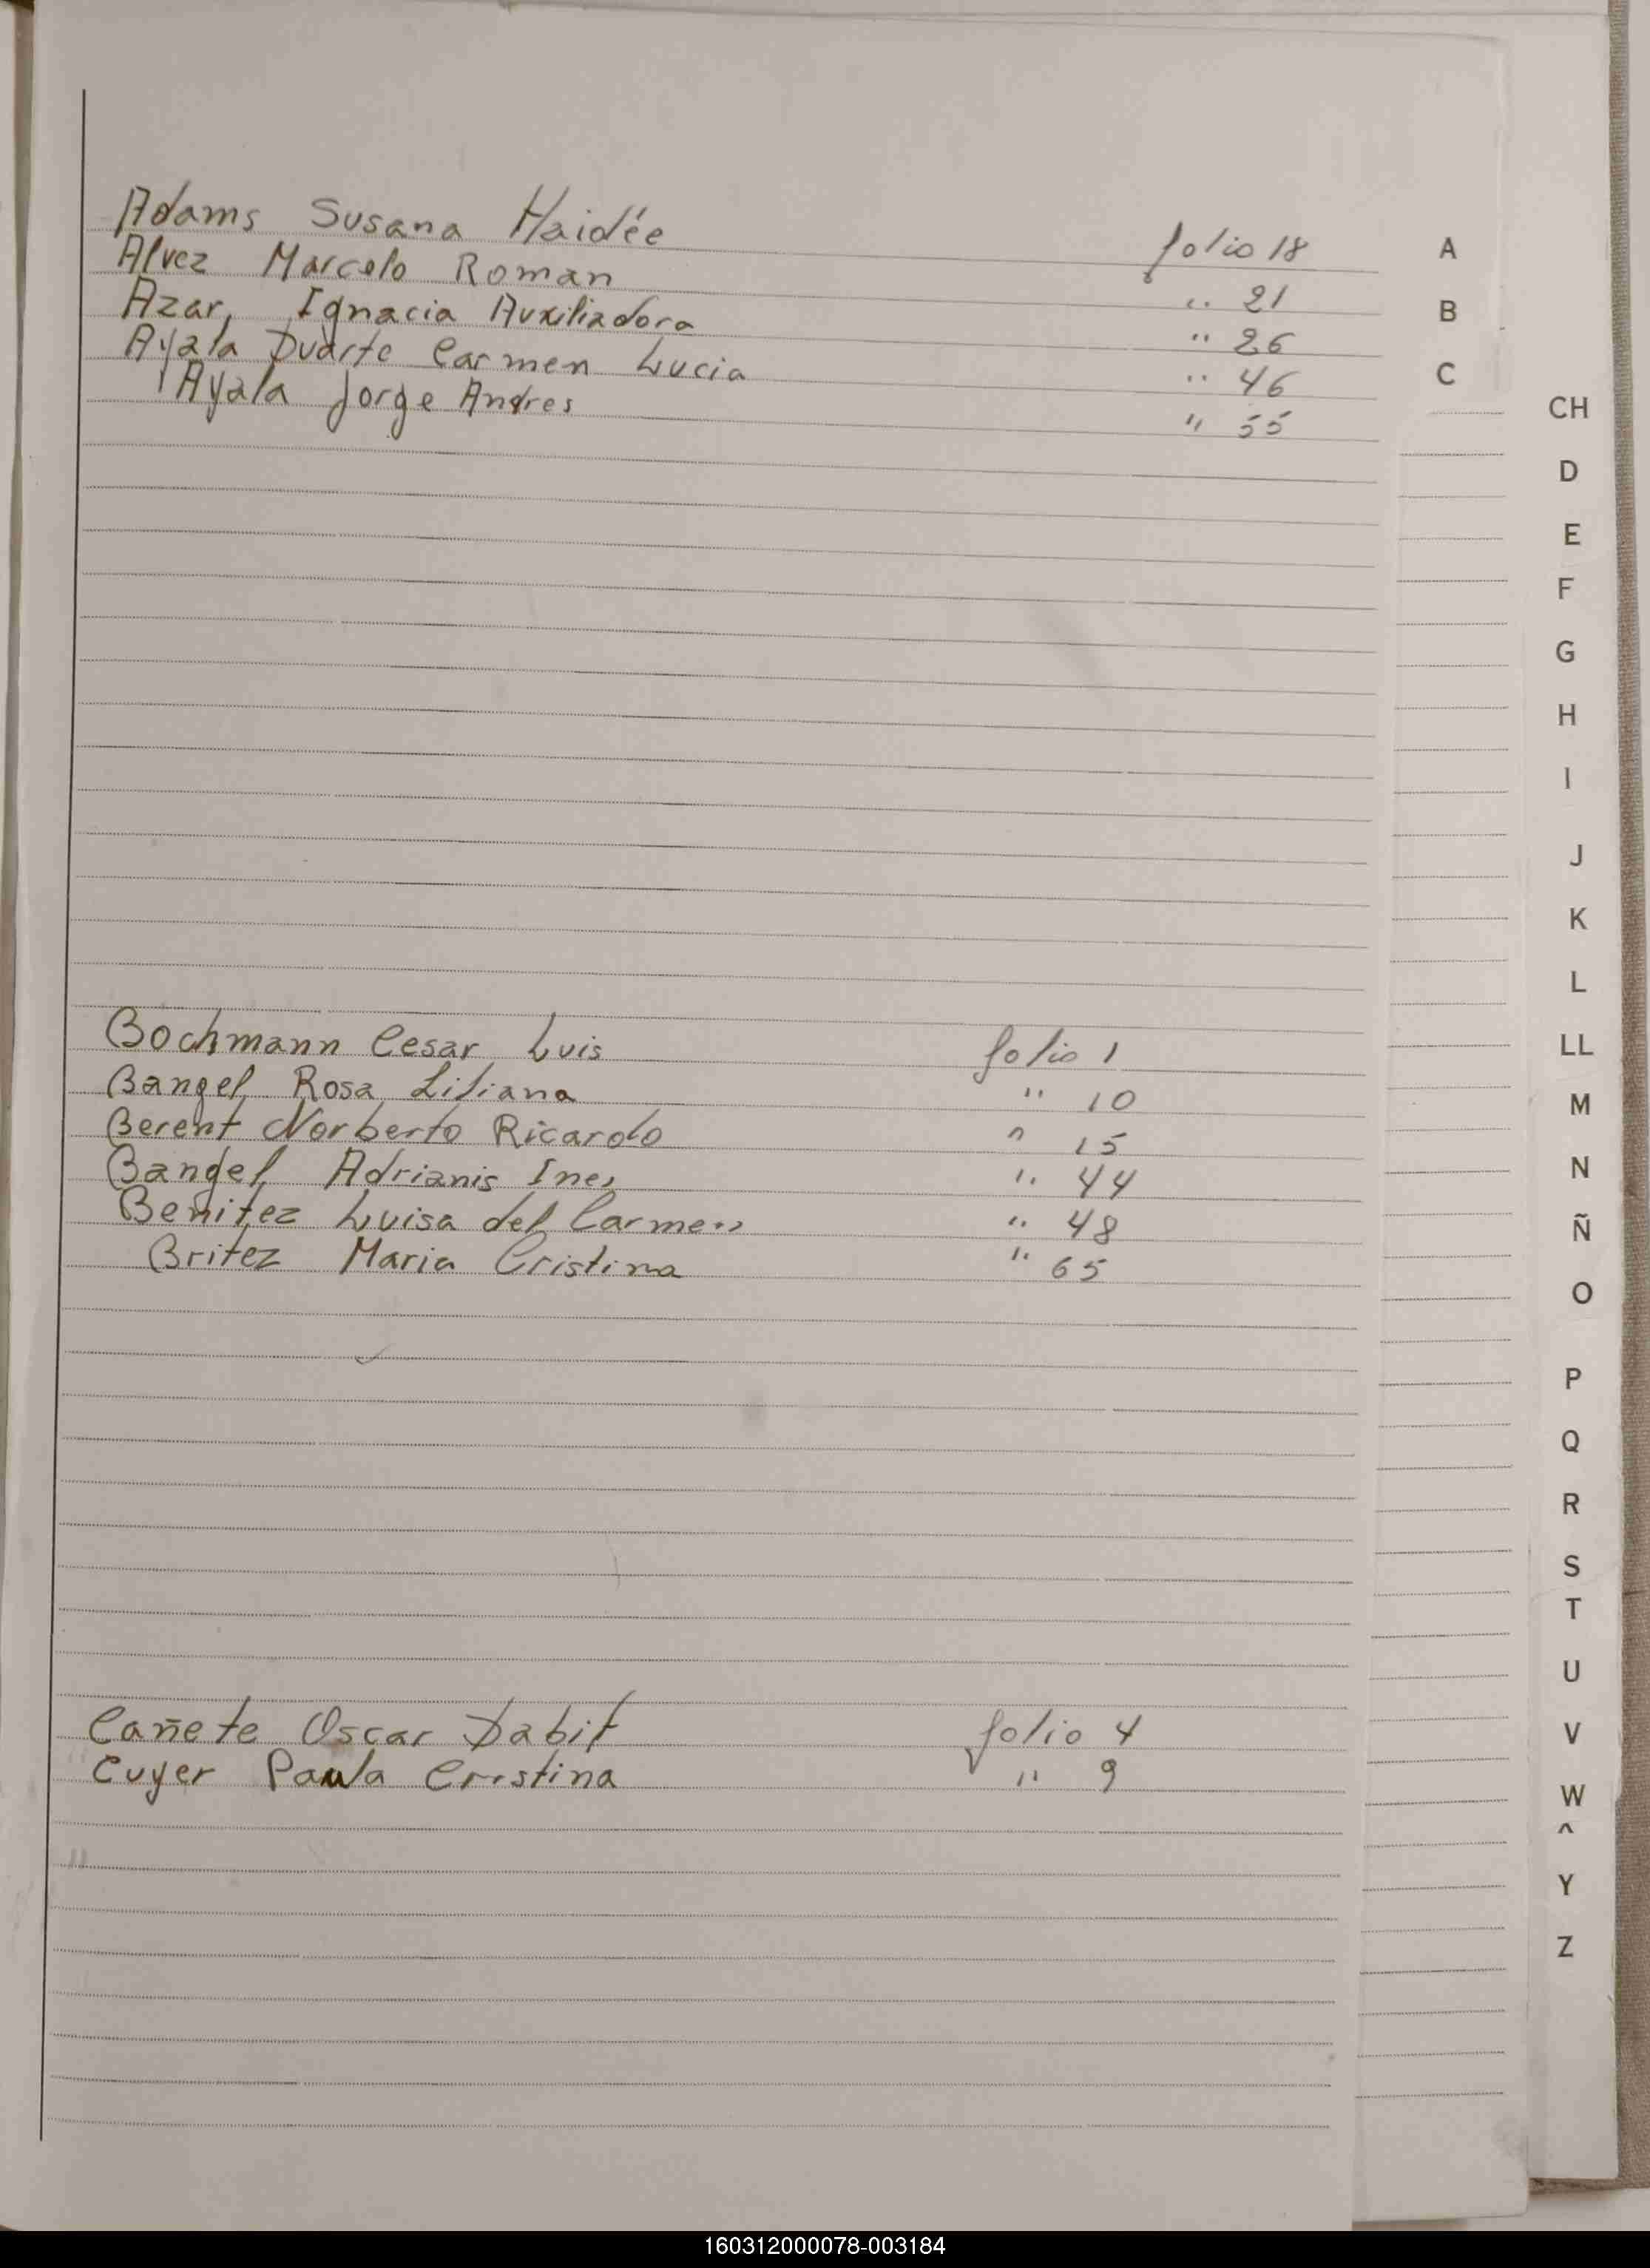 Adams Susana Haidée folio 18
Alvez Marcelo Roman " 21
Azar, Ignacia Auxiliadora " 26
Ayala Duarte Carmen Lucia " 46
Ayala Jorge Andres " 55
Bochmann Cesar Luis folio 1
Bangel Rosa Liliana " 10
Berent Norberto Ricardo " 15
Bangel Adrianis Ines " 44
Benitez Luisa del Carmen " 48
Britez Maria Cristina " 65
Cañete Oscar Dabit folio 4
Cuyer Paula Cristina " 9
A
B
C
CH
D
E
F
G
H
I
J
K
L
LL
M
N
Ñ
O
P
Q
R
S
T
U
V
W
^
Y
Z
160312000078-003184